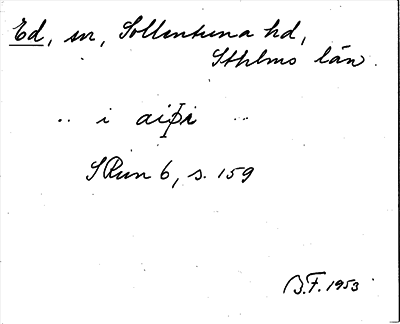 Ed, sn, Sollentuna hd,
Sthlms län.
.. i aiþi ..
SRun 6, s. 159
B.F. 1953